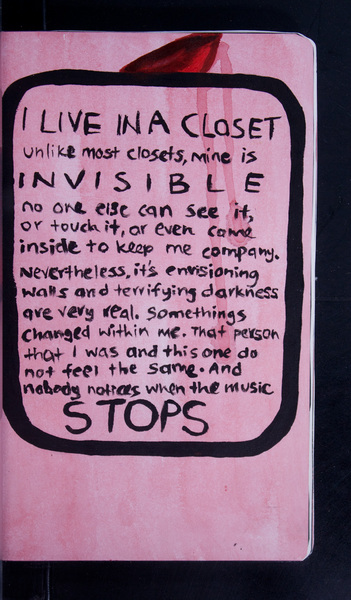 I LIVE IN A CLOSET
unlike most closets, mine is
INVISIBLE
no one else can see it,
or touch it, or even come
inside to keep me company.
Nevertheless, it's envisioning
walls and terrifying darkness
are very real. Somethings
changed within me. That person
that I was and this one do
not feel the same. And
nobody notices when the music
STOPS